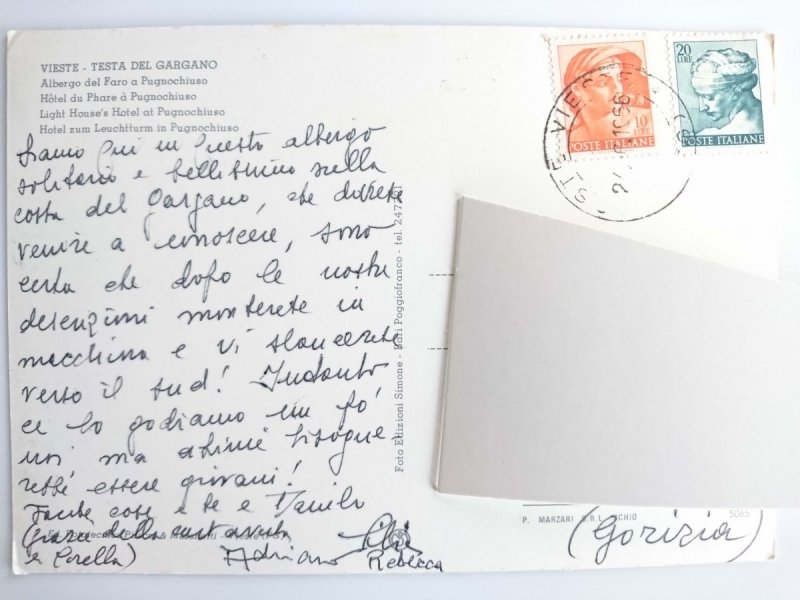 VIESTE - TESTA DEL GARGANO
Albergo del Faro a Pugnochiuso
Hôtel du Phare à Pugnochiuso
Light House's Hotel at Pugnochiuso
Hotel zum Leuchtturm in Pugnochiuso
Siamo qui in questo albergo
solitario e bellissimo nella
costa del Gargano, che dovrete
venire a conoscere, sono
certa che dopo le nostre
descrizioni monterete in
macchina e vi slancerete
verso il sud! Intanto
ce lo godiamo un po'
noi ma ahimè bisogne-
rebbe essere giovani!
Tante cose a te e Danilo
(grazie della
e Lorella)
Adriano
Rebecca
Foto Edizioni Simone - Bari Poggiofranco - tel.
10
LIRE
POSTE ITALIANE
20
LIRE
POSTE ITALIANE
P. MARZARI S.R.L.
5065
(Gorizia)